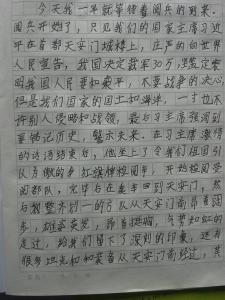 今天我一早就等待着阅兵的到来。
阅兵开始了，只见我们的国家主席习近
平在首都天安门城楼上，庄严的向世界
人民宣告，我国决定裁军30万，坚定表
明我国人民要和平，不要战争的决心，
但是我们国家的国土和海洋，一寸也不
许别人侵略和战领，最后习主席强调到
要铭记历史，警示未来。在习主席激情
的讲话结束后，他坐上了令我们祖国引
以为傲的车红旗牌检阅车，开始检阅受
阅部队，完毕后在坐车回到天安门，然
后一个整齐划一的方队从天安门前昂首阔
步，雄姿英发，昂首挺胸，气势如虹的
走过，给我们留下了深刻的印象，还有
很多坦克和和装备从天安门前经过，其